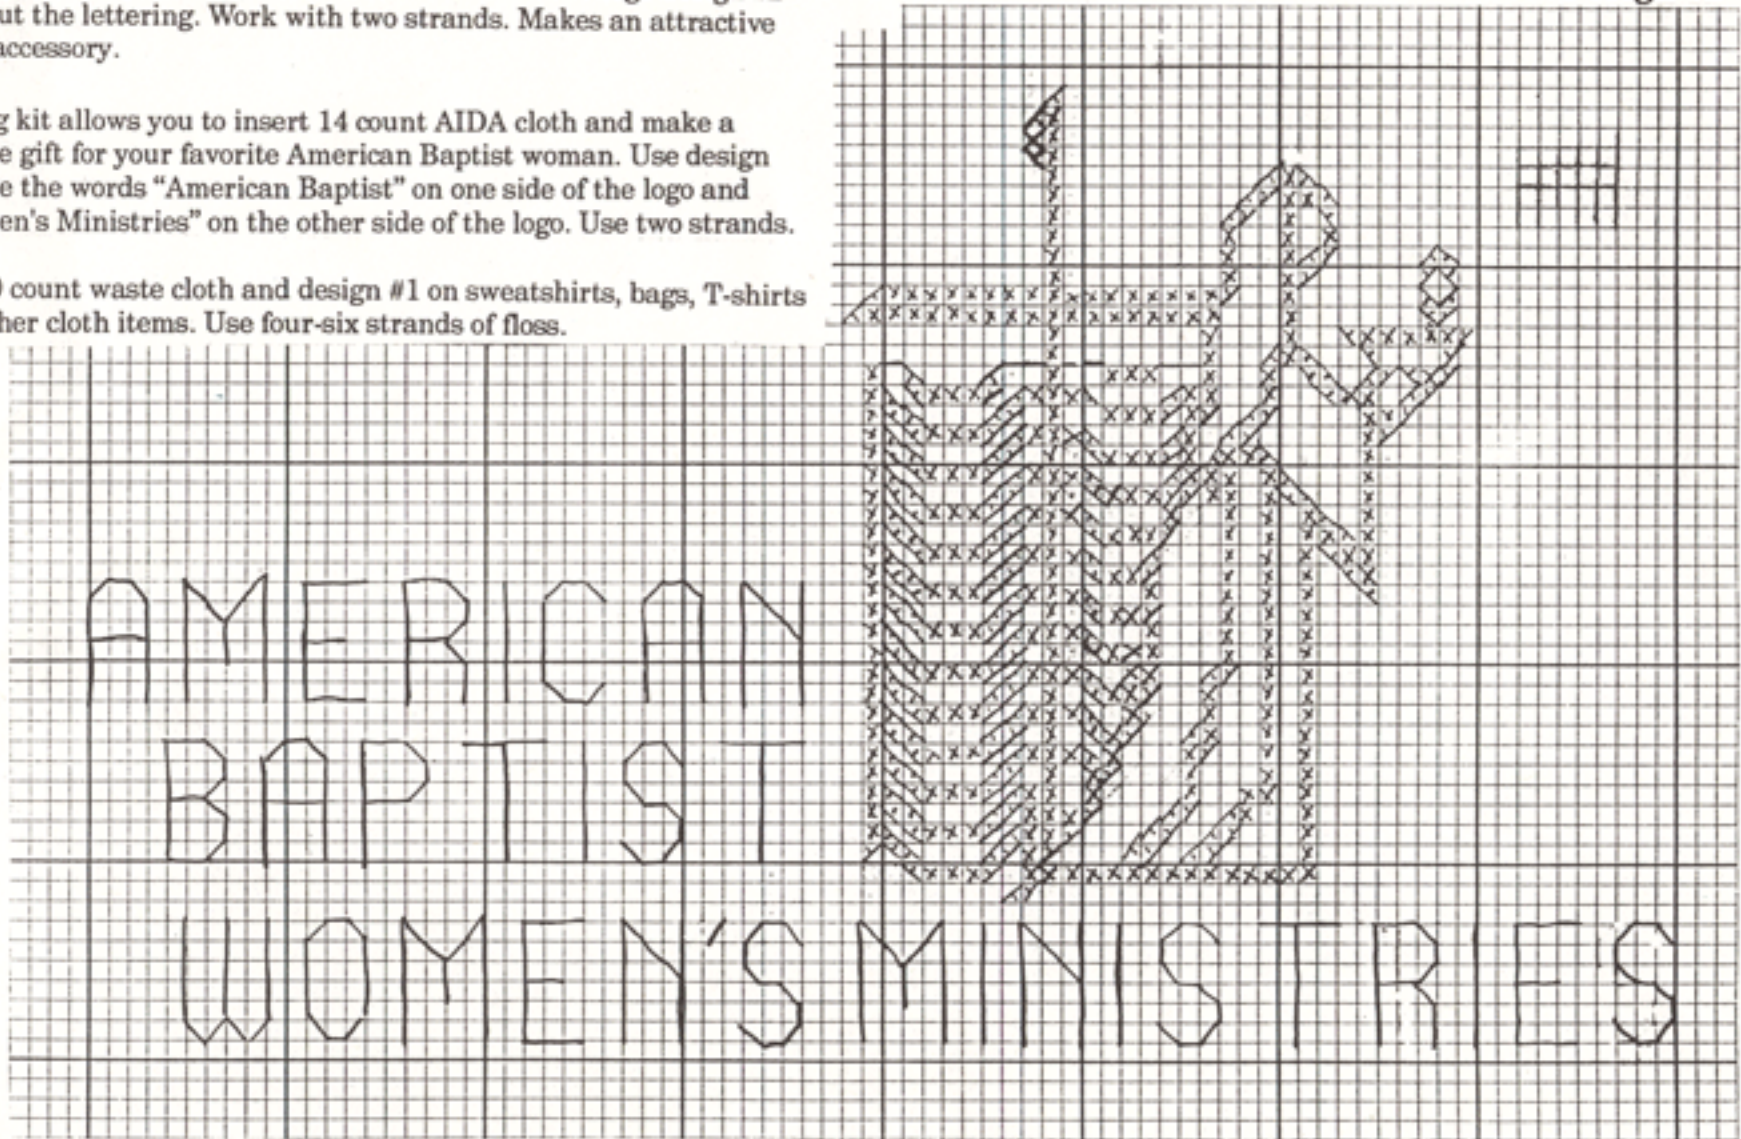 ut the lettering. Work with two strands. Makes an attractive
accessory.
g kit allows you to insert 14 count AIDA cloth and make a
e gift for your favorite American Baptist woman. Use design
e the words “American Baptist” on one side of the logo and
en's Ministries” on the other side of the logo. Use two strands.
count waste cloth and design #1 on sweatshirts, bags, T-shirts
her cloth items. Use four-six strands of floss.
AMERICAN
BAPTIST
WOMEN'S MINISTRIES